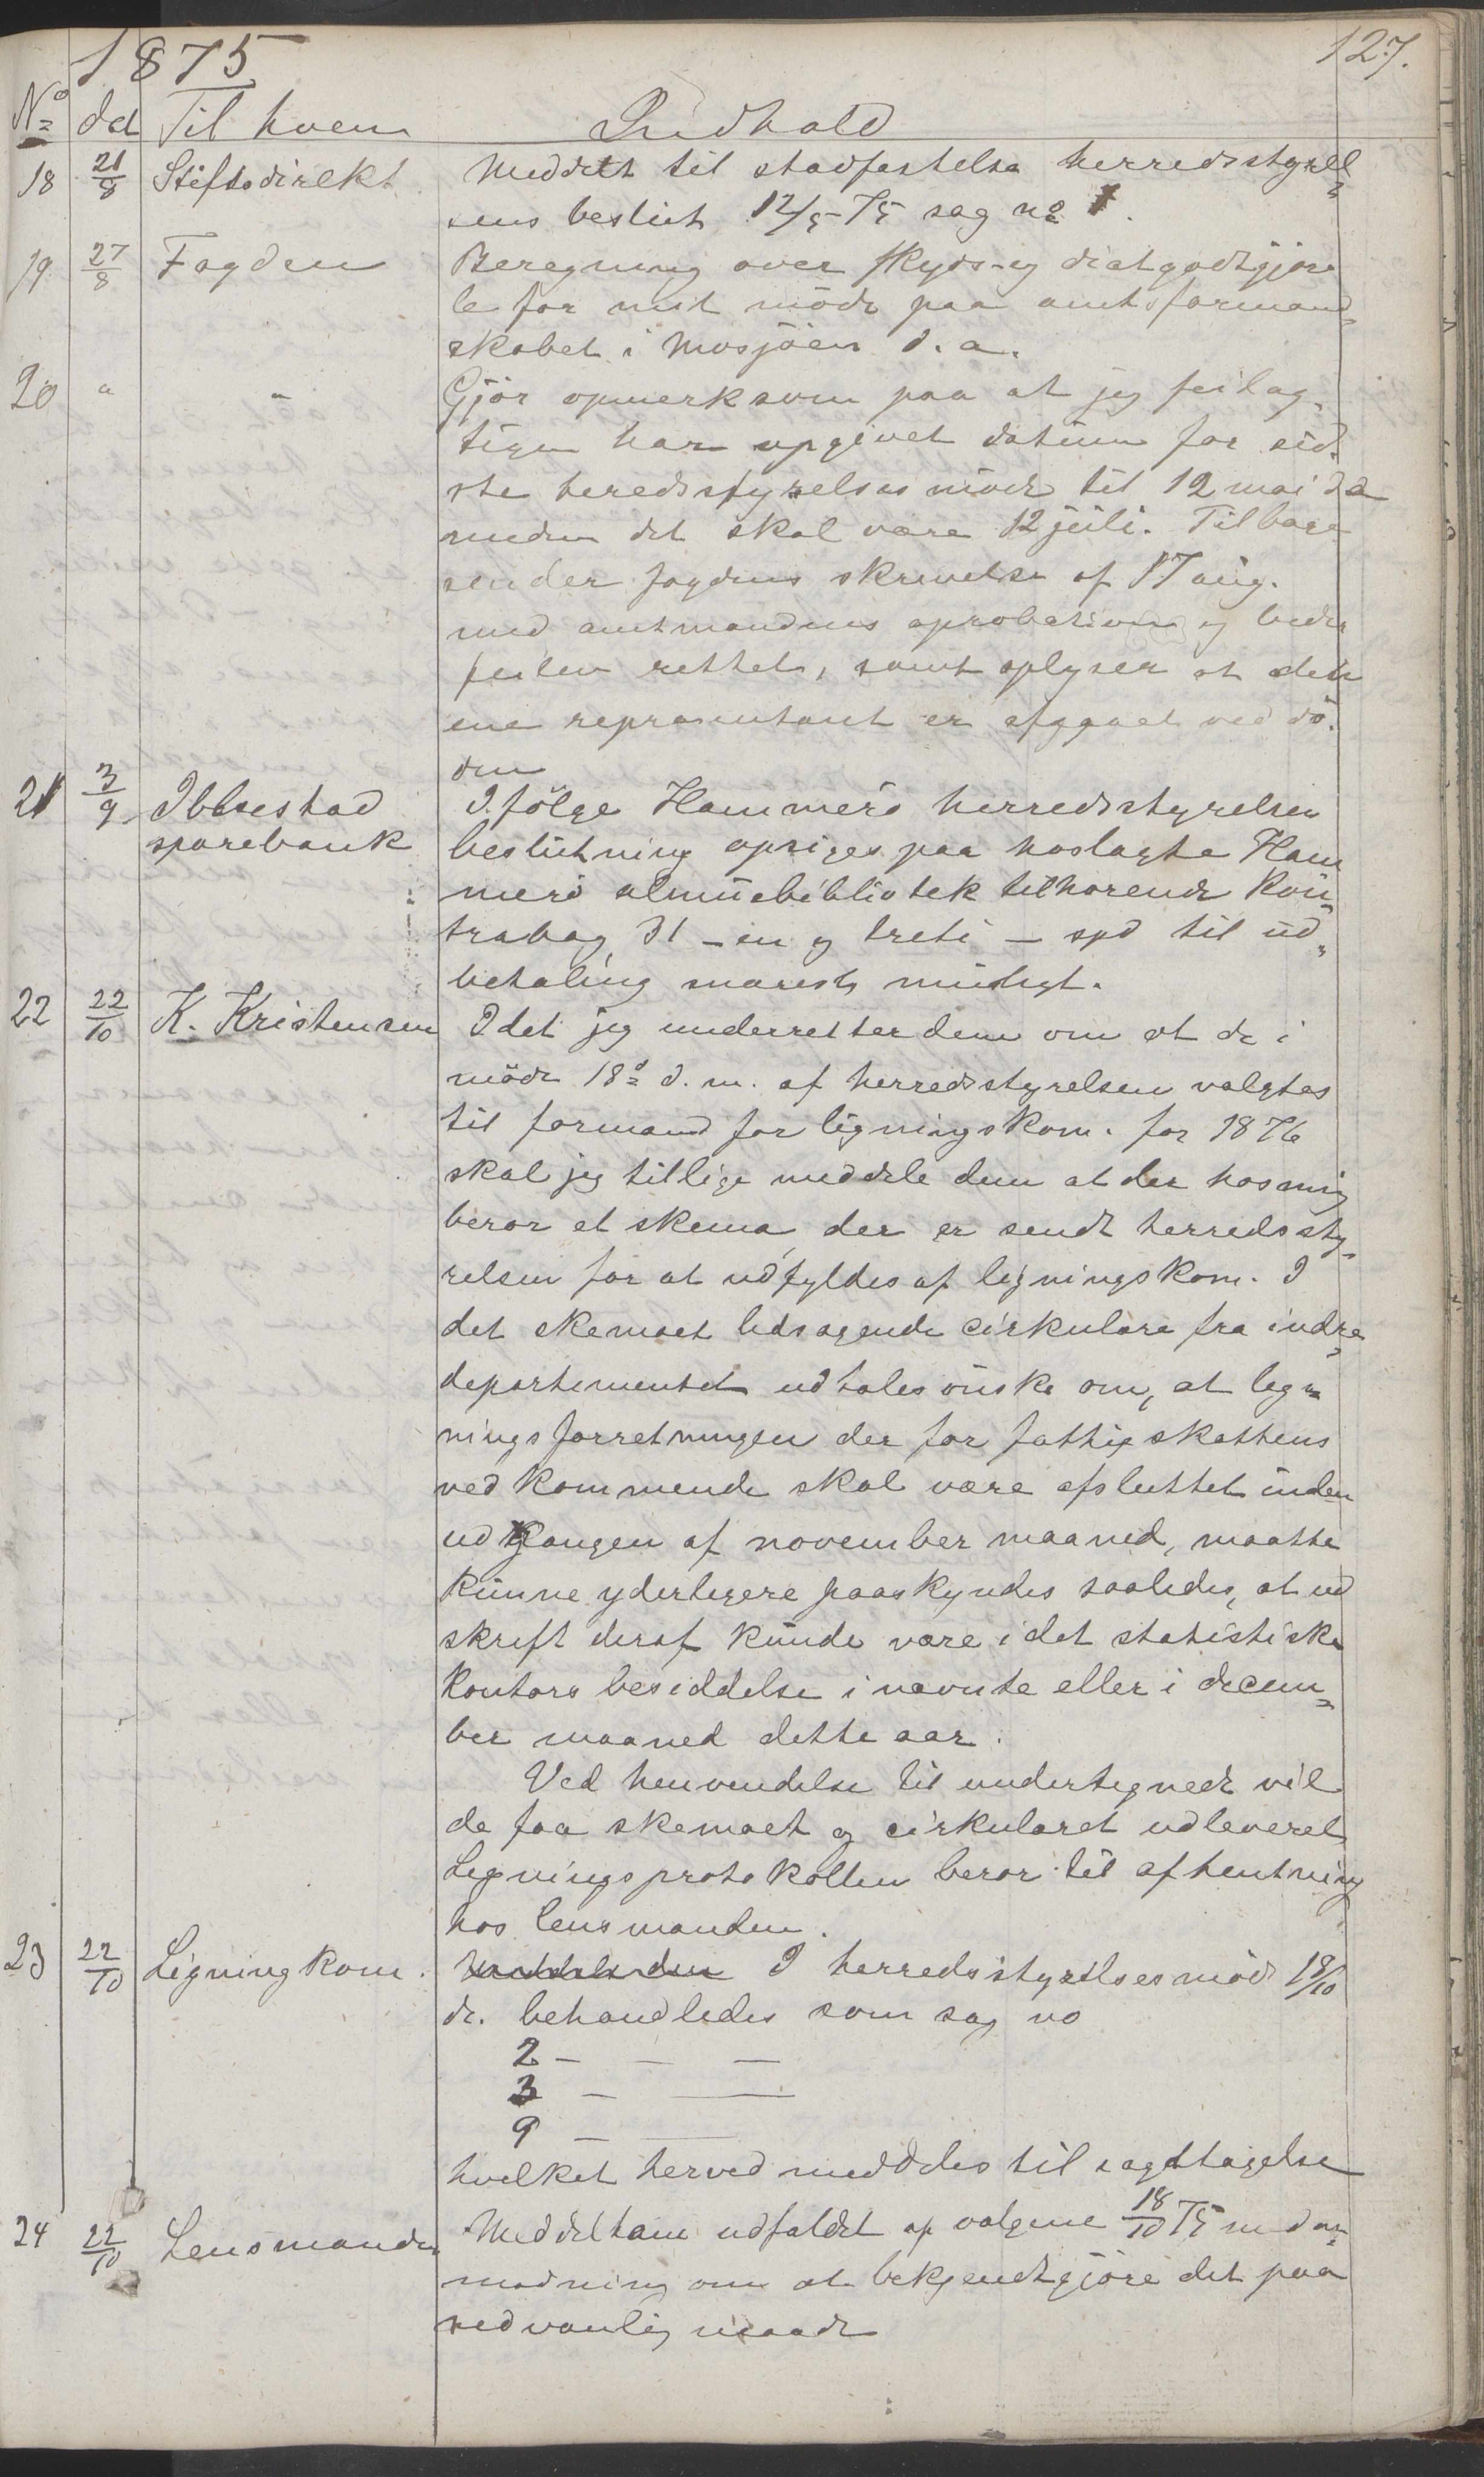 1875
127.
No dd Til hvem Indhold
18 21/8 Stiftsdirekt. Meddelt til stadfæstelse herredsstyrel¬
sens beslut 12/5 75 sag no 1.
19 27/8 Fogden Beregning over skyds- og diætgodtgjørel
le for mit möde paa amtsformand¬
skabet i Mosjöen d. a.
20 " " Gjör opmerksom paa at jeg feilag¬
tigen har opgivet datum for sid¬
ste heredsstyrelses möde til 12 mai d a
meden det skal være 12 juli. Tilbage
sender fogdens skrivelse af 17 aug.
med amtmandens aprobation og beder
feilen rettet, samt oplyser at den
ene repræsentant er afgaaet ved dö¬
den
21 3/9 Ibbestad
sparebank
Ifölge Hammerö herredsstyrelses
beslutning opsiges paa hoslagte Ham
merö almuebibliotek tilhörende kon¬
trabog 31 – en og treti – spd til ud¬
betaling snarest muligt.
22 22/10 K. Kristensen Idet jeg underretter dem om at de i
möde 18de d. m. af herredsstyrelsen valgtes
til formand for ligningskom. for 1876
skal jeg tillige meddele dem at der hos mig
beror et skema, der er sendt herredssty¬
relsen for at udfyldes af ligningskom. I
det skemaet ledsagende cirkulære fra indre
departementet udtales önske om, at lig¬
ningsforretningen der for fattigskattens
vedkommende skal være afsluttet inden
udgangen af november maaned, maatte
kunne yderligere paaskyndes saaledes, at ud
skrift deraf kunde være i det statistiske
kontors besiddelse i nævnte eller i decem¬
ber maaned dette aar.
Ved henvendelse til undertegnede vil
de faa skemaet og cirkulæret udleveret
Ligningsprotokollen beror til afhentning
hos lensmanden.
23 22/10 Ligningkom. I herredsstyrelsesmöde 18/10
d. behandledes som sag no
2 – – –
3 – –
9 – –
hvilket herved meddeles til iagttagelse
24 22/10 Lensmanden Meddelt ham udfaldet af valgene 18/10 75 med an¬
modning om at bekjendtgjöre det paa
sedvanlig maade